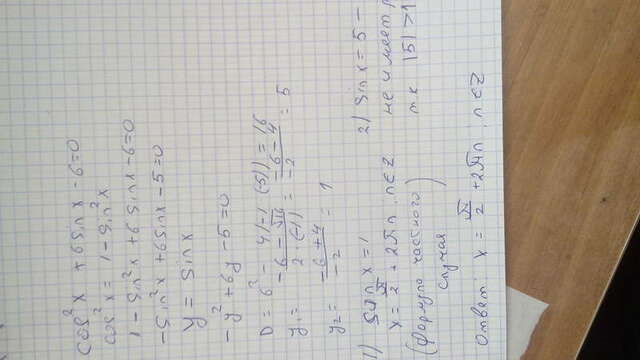 cos²x + 6sinx - 6 = 0
cos²x = 1 - sin²x
1 - sin²x + 6sinx - 6 = 0
-sin²x + 6sinx - 5 = 0
y = sinx
-y² + 6y - 5 = 0
D = 6² - 4(-1·(-5)) = 16
y₁ = (-6 - √16)/(2·(-1)) = (-6-4)/(-2) = 5
y₂ = (-6+4)/(-2) = 1
1) sin x = 1
x = π/2 + 2πn, n∈Z
(формула частного
случая
2) sinx = 5 -
не имеет
тк |5| > 1
Ответ: x = π/2 + 2πn; n∈Z